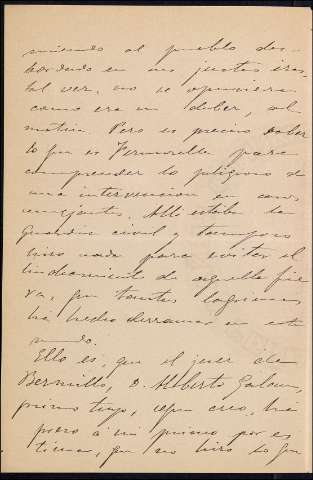 al pueblo des-
bordado en sus justas iras
tal vez, no se opusiera
como era su deber, al
motin. Pero es preciso saber
lo que es Fermoselle para
comprender lo peligroso de
una intervencion en casos
semejantes. Alli estaba la
guardia civil y tampoco
hizo nada para evitar el
linchamiento de aquella fie
ra, que tantas lagrimas
ha hecho derramar en este
mundo.
Ello es, que el juez de
Bermillo, D. Alberto
primo tuyo, segun creo, ha
á mi primo por es
tima, que no hizo lo que